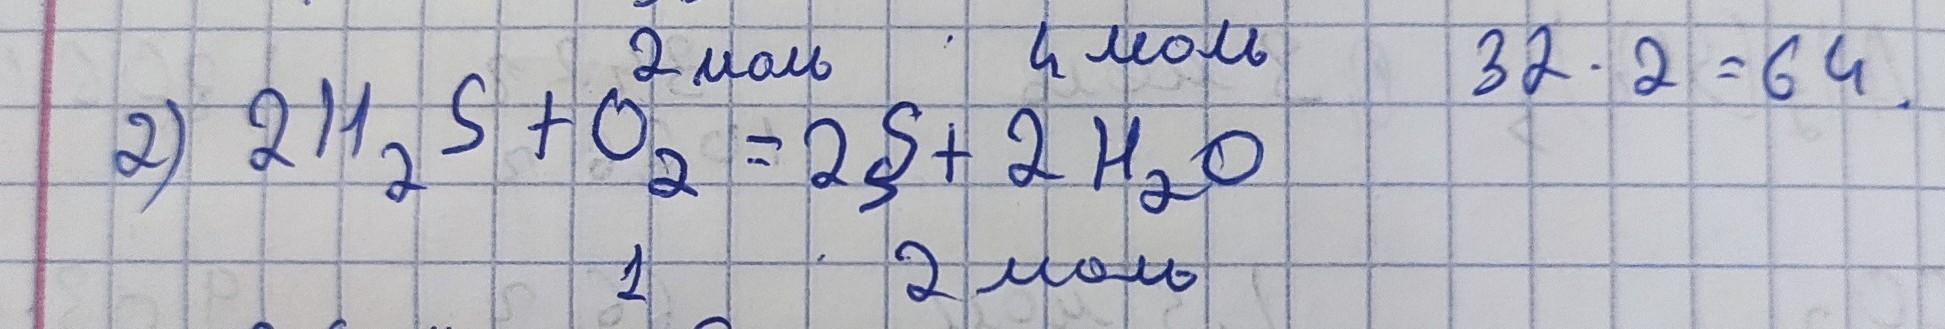 2 моль 4 моль 32 · 2 = 64.
2) 2H₂S + O₂ = 2S + 2H₂O
1 2 моль